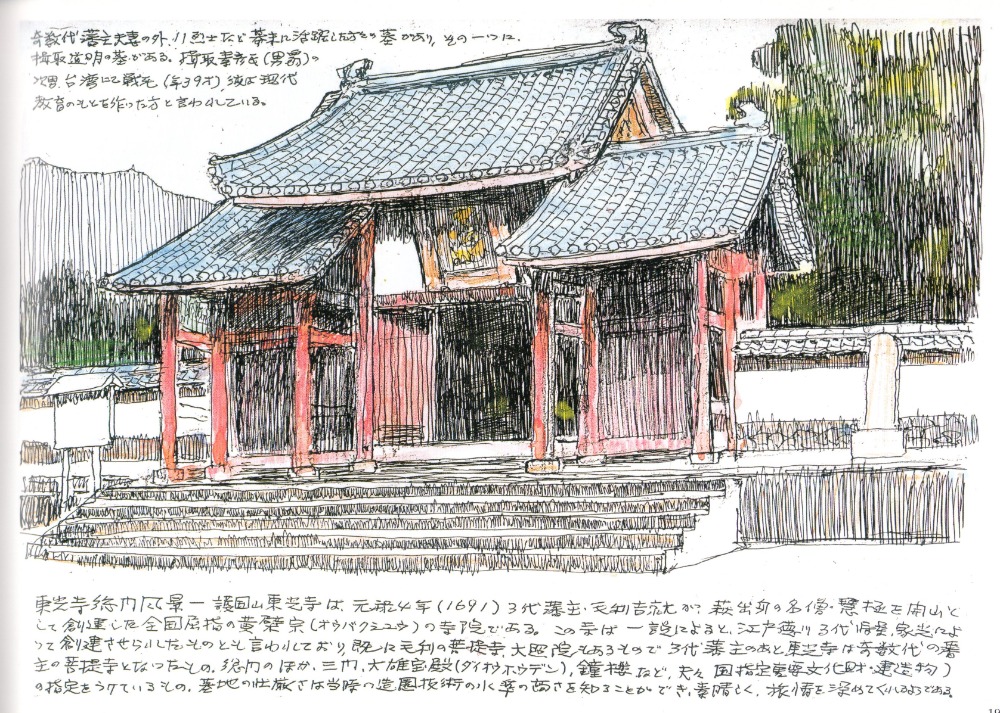 奇数代藩主夫妻の外、11烈士など幕末に活躍した方々の墓があり、その一つに、
楫取道明の墓がある。楫取素彦氏(男爵)の
次男、台湾にて戦死(年39才)、彼は現代
教育のもとを作った方と言われている。
東光寺総門風景ー護国山東光寺は、元禄4年(1691)3代藩主・毛利吉就が、萩出身の名僧・慧極を開山と
して創建した全国屈指の黄檗宗(オウバクシュウ)の寺院である。この寺は一説によると、江戸幕府3代将軍、家光によ
って創建させられしたものとも言われており、既に毛利の菩提寺大照院もあるもので3代藩主のあと、東光寺は奇数代の藩
主の菩提寺となったもの。総門のほか、三門、大雄宝殿(ダイオウホウデン)、鐘楼など、夫々国指定重要文化財・建造物)
の指定をうけているもの。墓地の壮厳さは当時の造園技術の水準の高さを知ることができ、素晴らしく、旅情を深めてくれるようである。